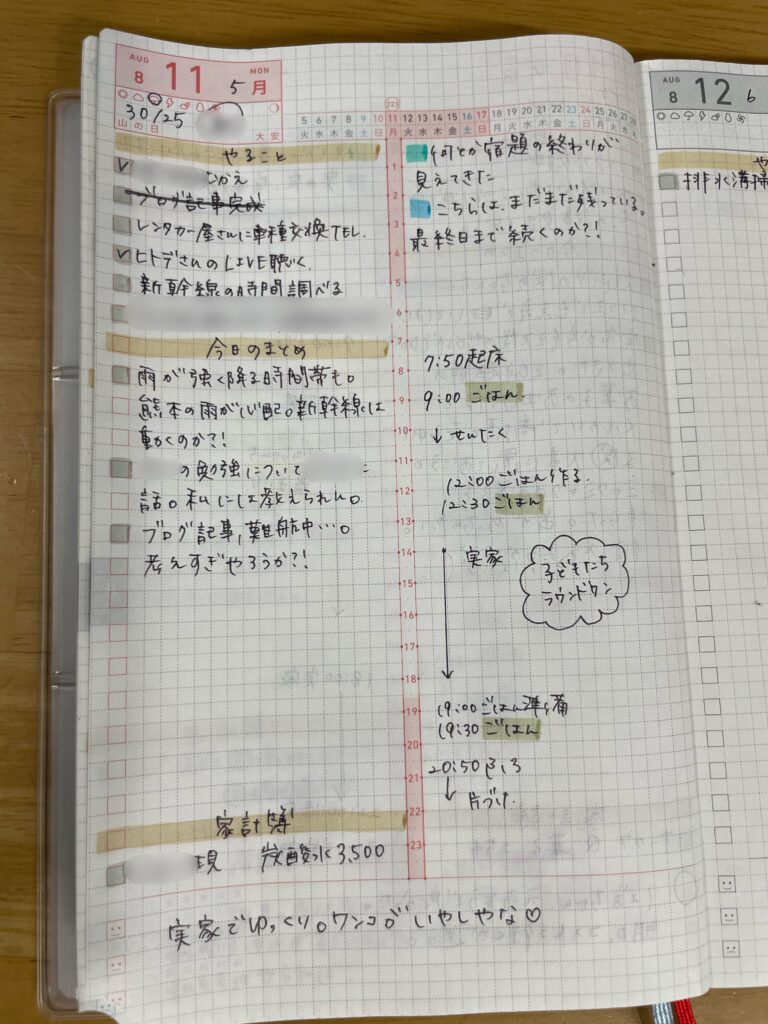 AUG 8 11 5 MON 月
30/25
山の日 大安
5 6 7 8 9 10 11 12 13 14 15 16 17 18 19 20 21 22 23 24 25 26 27 28
火 水 木 金 土 日 月 火 水 木 金 土 日 月 火 水 木 金 土 日 月 火 水 木
223
やること
ブログ記事完成
レンタカー屋さんに車種交換TEL.
ヒトデさんのLIVE聴く.
新幹線の時間調べる
今日のまとめ
雨が強く降る時間帯も。
熊本の雨が心配。新幹線は
動くのか?!
の勉強について
話。私には教えられん。
ブログ記事,難航中…。
考えすぎやろうか?!
家計簿
現 炭酸水 3,500
1
2
3
4
5
6
7
8
9
10
11
12
13
14
15
16
17
18
19
20
21
22
23
何とか宿題の終わりが
見えてきた
こちらは、まだまだ残っている。
最終日まで続くのか?!
7:50起床
9:00 ごはん
↓ せんたく
12:00 ごはん作る
12:30 ごはん
実家
子どもたち
ラウンドワン
19:00 ごはん準備
19:30 ごはん
20:50 ふろ
↓ 片づけ
実家でゆっくり。ワンコがいやしやな♡
AUG 8 12 6
排水溝掃